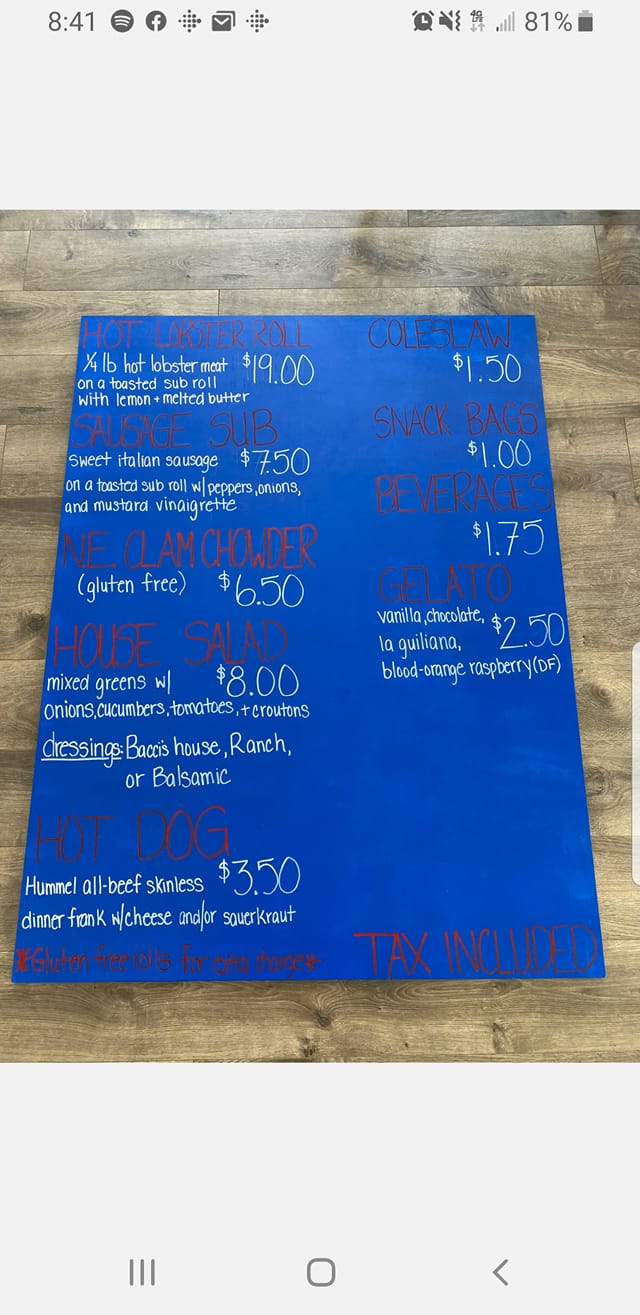 8:41
4G
LTE
81%
HOT LOBSTER ROLL
1/4 lb hot lobster meat $19.00
on a toasted sub roll
with lemon + melted butter
SAUSAGE SUB
sweet italian sausage $7.50
on a toasted sub roll w/ peppers, onions,
and mustard vinaigrette
N.E. CLAM CHOWDER
(gluten free) $6.50
HOUSE SALAD
mixed greens w/ $8.00
onions, cucumbers, tomatoes, + croutons
dressings: Bacci's house, Ranch,
or Balsamic
HOT DOG
Hummel all-beef skinless $3.50
dinner frank w/cheese and/or sauerkraut
*Gluten free rolls for extra charge*
COLESLAW
$1.50
SNACK BAGS
$1.00
BEVERAGES
$1.75
GELATO
vanilla, chocolate, $2.50
la guiliana,
blood-orange raspberry (DF)
TAX INCLUDED